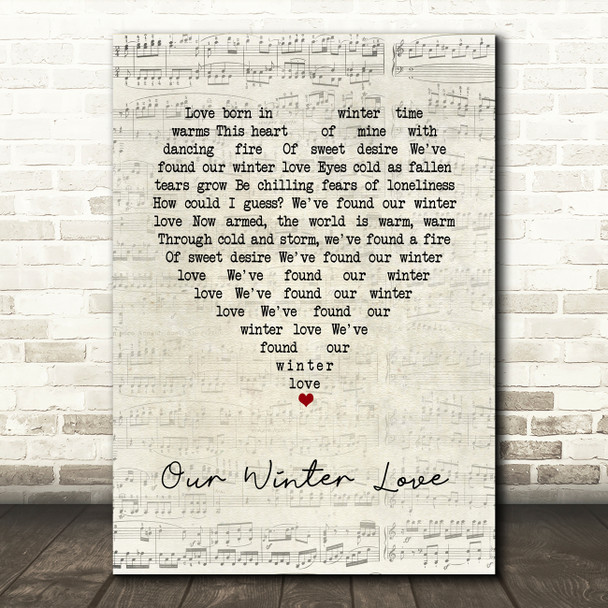 Love born in winter time
warms This heart of mine with
dancing fire Of sweet desire We've
found our winter love Eyes cold as fallen
tears grow Be chilling fears of loneliness
How could I guess? We've found our winter
love Now armed, the world is warm, warm
Through cold and storm, we've found a fire
Of sweet desire We've found our winter
love We've found our winter
love We've found our winter
love We've found our
winter love We've
found our
winter
love
Our Winter Love